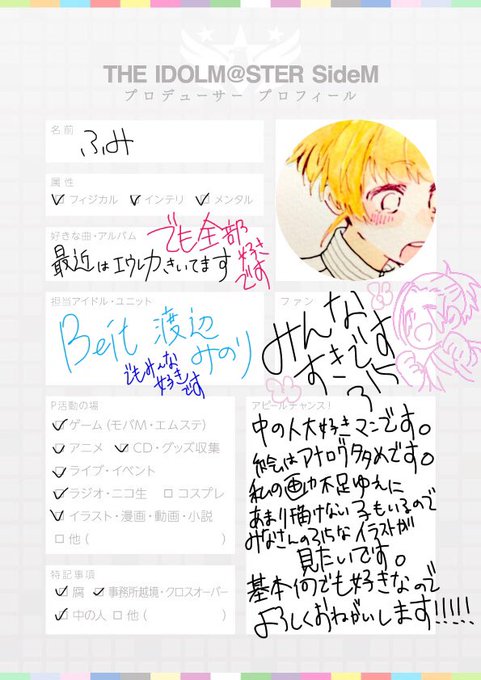 THE IDOLM@STER SideM
プロデューサー プロフィール
名前
ふみ
属性
フィジカル インテリ メンタル
好きな曲・アルバム
最近はエウレカきいてます
でも全部
好き
です
担当アイドル・ユニット
Beit 渡辺
みのり
でもみんな
好き
です
ファン
みんな
すきです
P活動の場
ゲーム (モバM・エムステ)
アニメ CD・グッズ収集
ライブ・イベント
ラジオ・ニコ生 コスプレ
イラスト・漫画・動画・小説
他 ( )
特記事項
腐 事務所越境・クロスオーバー
中の人 他 ( )
アピールチャンス!
中の人大好きマンです。
絵はアナログ多めです。
私の画力不足ゆえに
あまり描けない子もいるので
みなさんのふらなイラストが
見たいです。
基本何でも好きなので
よろしくおねがいします!!!!!